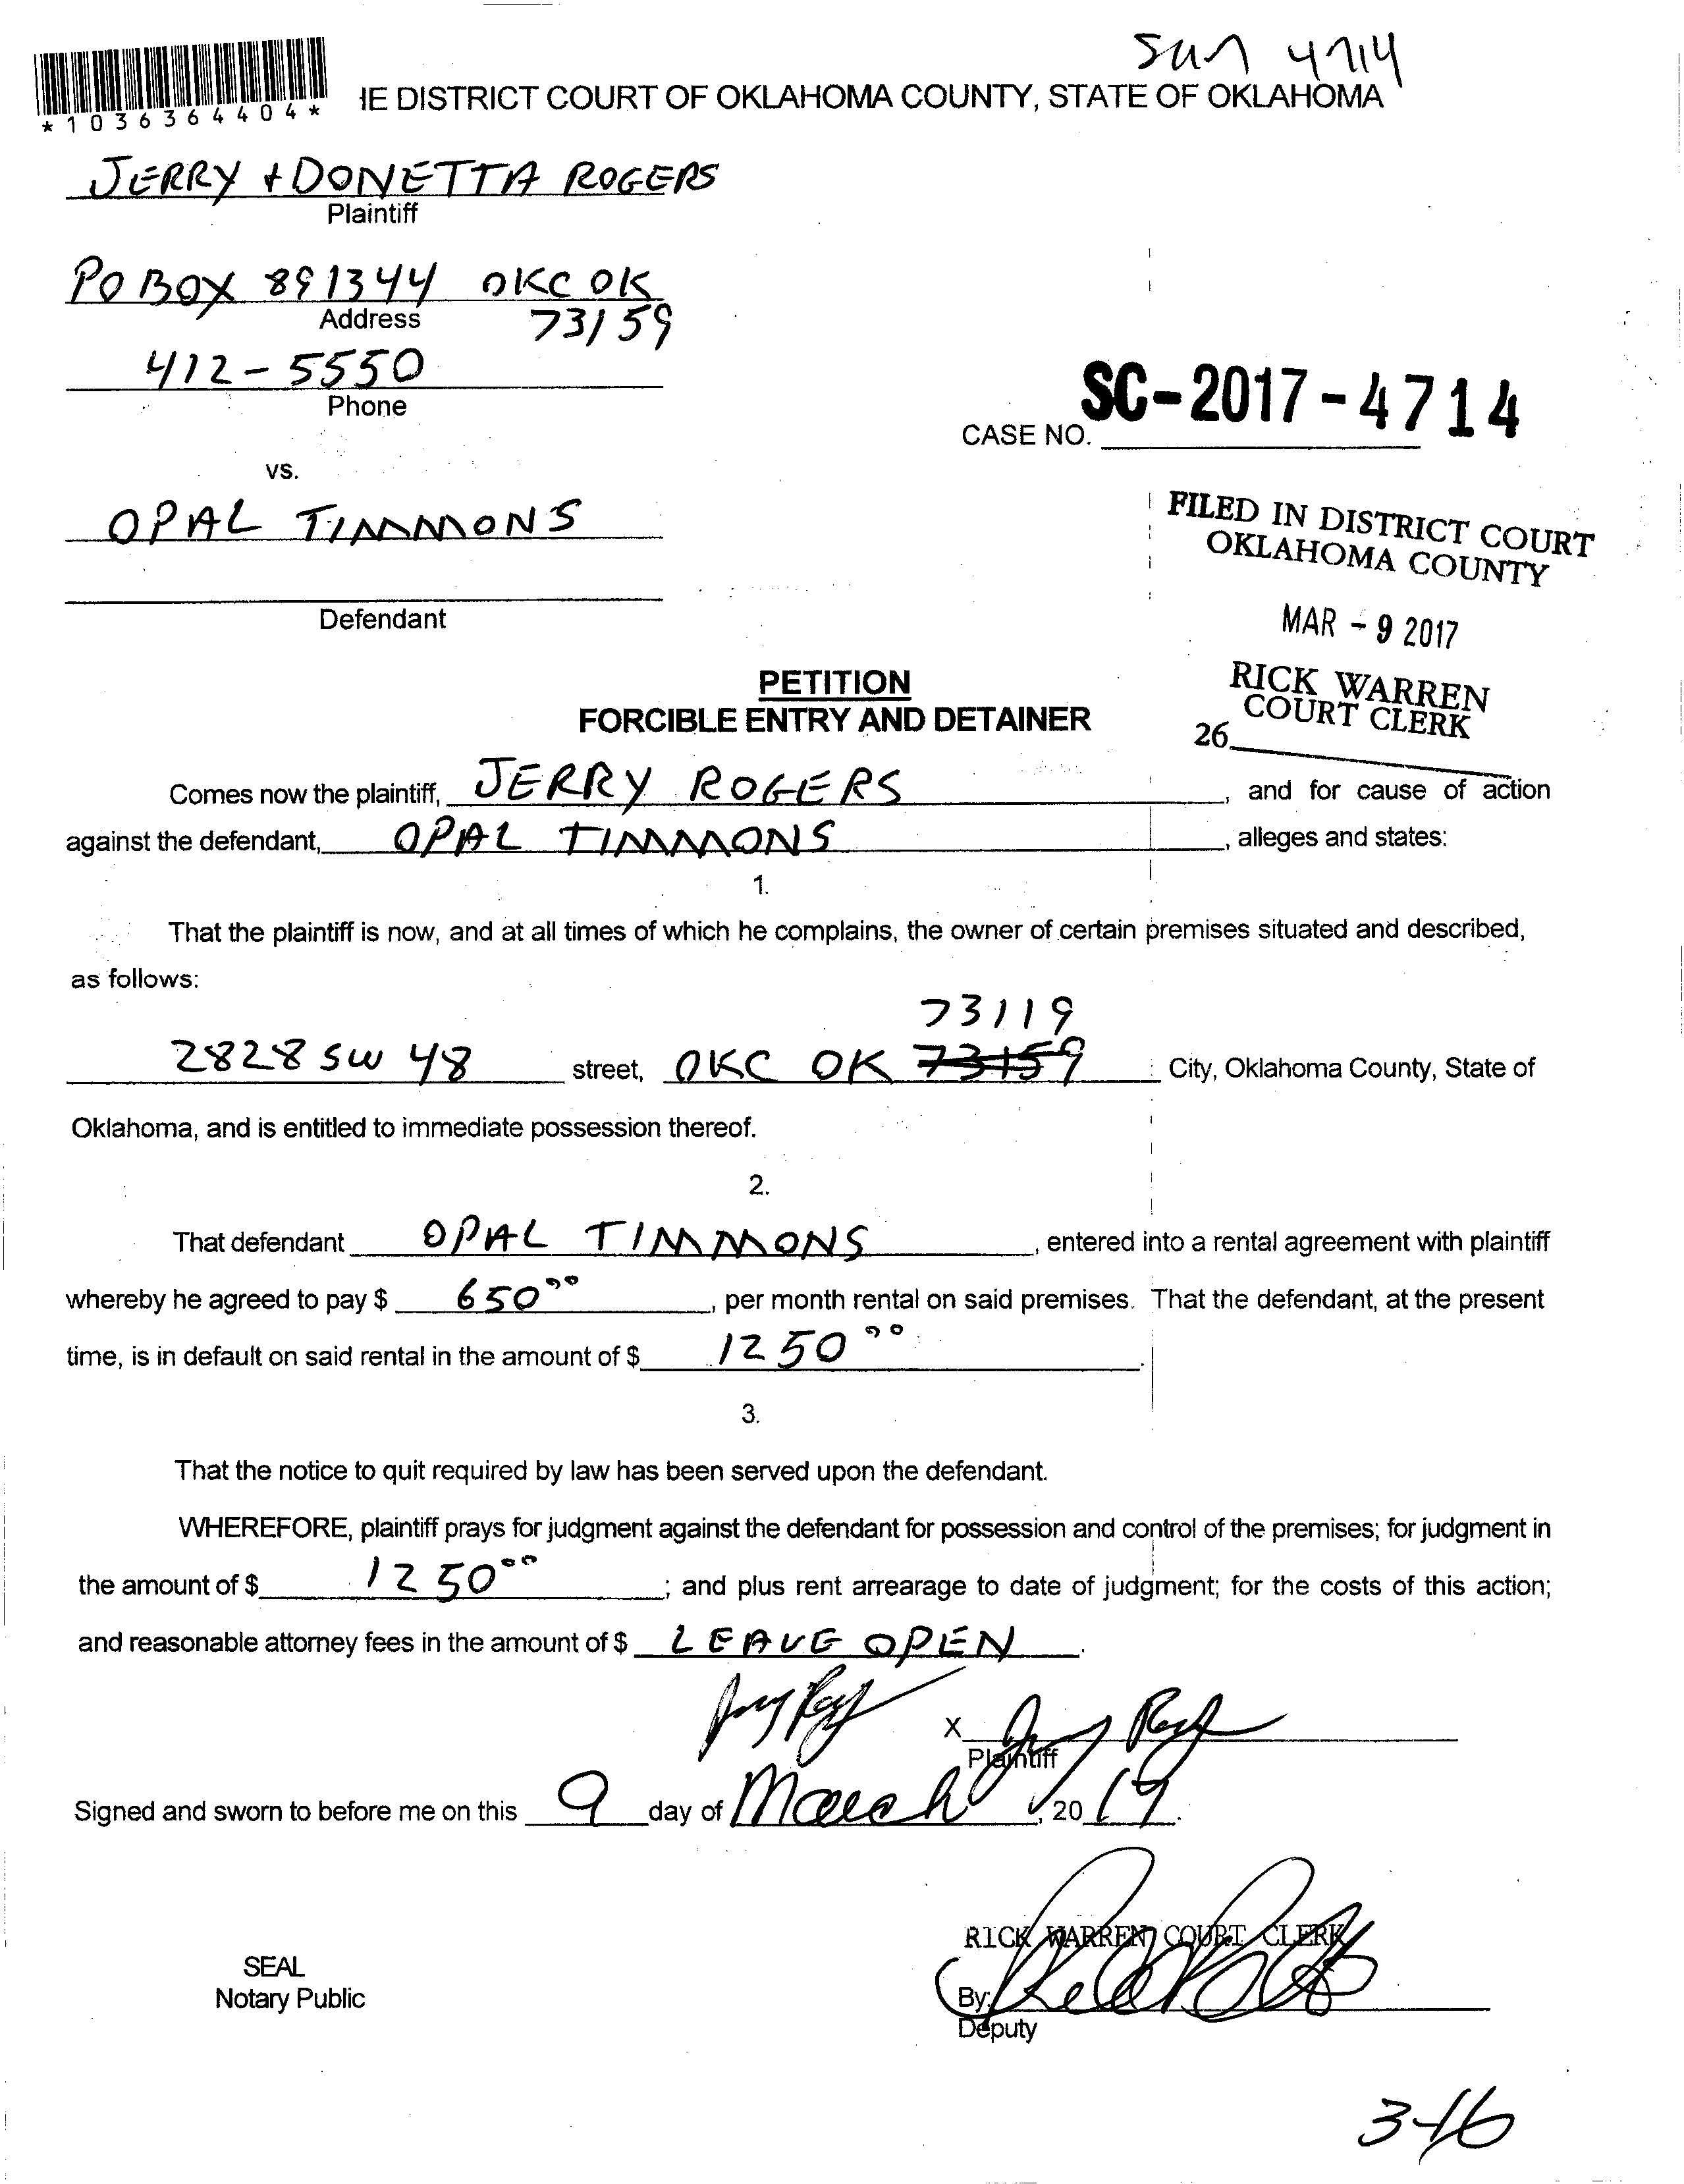 SUM 4714
*1036364404*
HE DISTRICT COURT OF OKLAHOMA COUNTY, STATE OF OKLAHOMA
JERRY + DONETTA ROGERS
Plaintiff
PO BOX 891344 OKC OK
Address 73159
412-5550
Phone
SC-2017-4714
CASE NO.
vs.
OPAL TIMMONS
Defendant
FILED IN DISTRICT COURT
OKLAHOMA COUNTY
MAR - 9 2017
RICK WARREN
COURT CLERK
26
PETITION
FORCIBLE ENTRY AND DETAINER
Comes now the plaintiff, JERRY ROGERS, and for cause of action
against the defendant, OPAL TIMMONS, alleges and states:
1.
That the plaintiff is now, and at all times of which he complains, the owner of certain premises situated and described,
as follows:
73119
2828 SW 48 street, OKC OK 73159 City, Oklahoma County, State of
Oklahoma, and is entitled to immediate possession thereof.
2.
That defendant OPAL TIMMONS, entered into a rental agreement with plaintiff
whereby he agreed to pay $ 650 00, per month rental on said premises. That the defendant, at the present
time, is in default on said rental in the amount of $ 1250 00.
3.
That the notice to quit required by law has been served upon the defendant.
WHEREFORE, plaintiff prays for judgment against the defendant for possession and control of the premises; for judgment in
the amount of $ 1250 00; and plus rent arrearage to date of judgment; for the costs of this action;
and reasonable attorney fees in the amount of $ LEAVE OPEN.
X
Plaintiff
Signed and sworn to before me on this 9 day of March, 20 17.
RICK WARREN COURT CLERK
SEAL
Notary Public
By:
Deputy
3-16